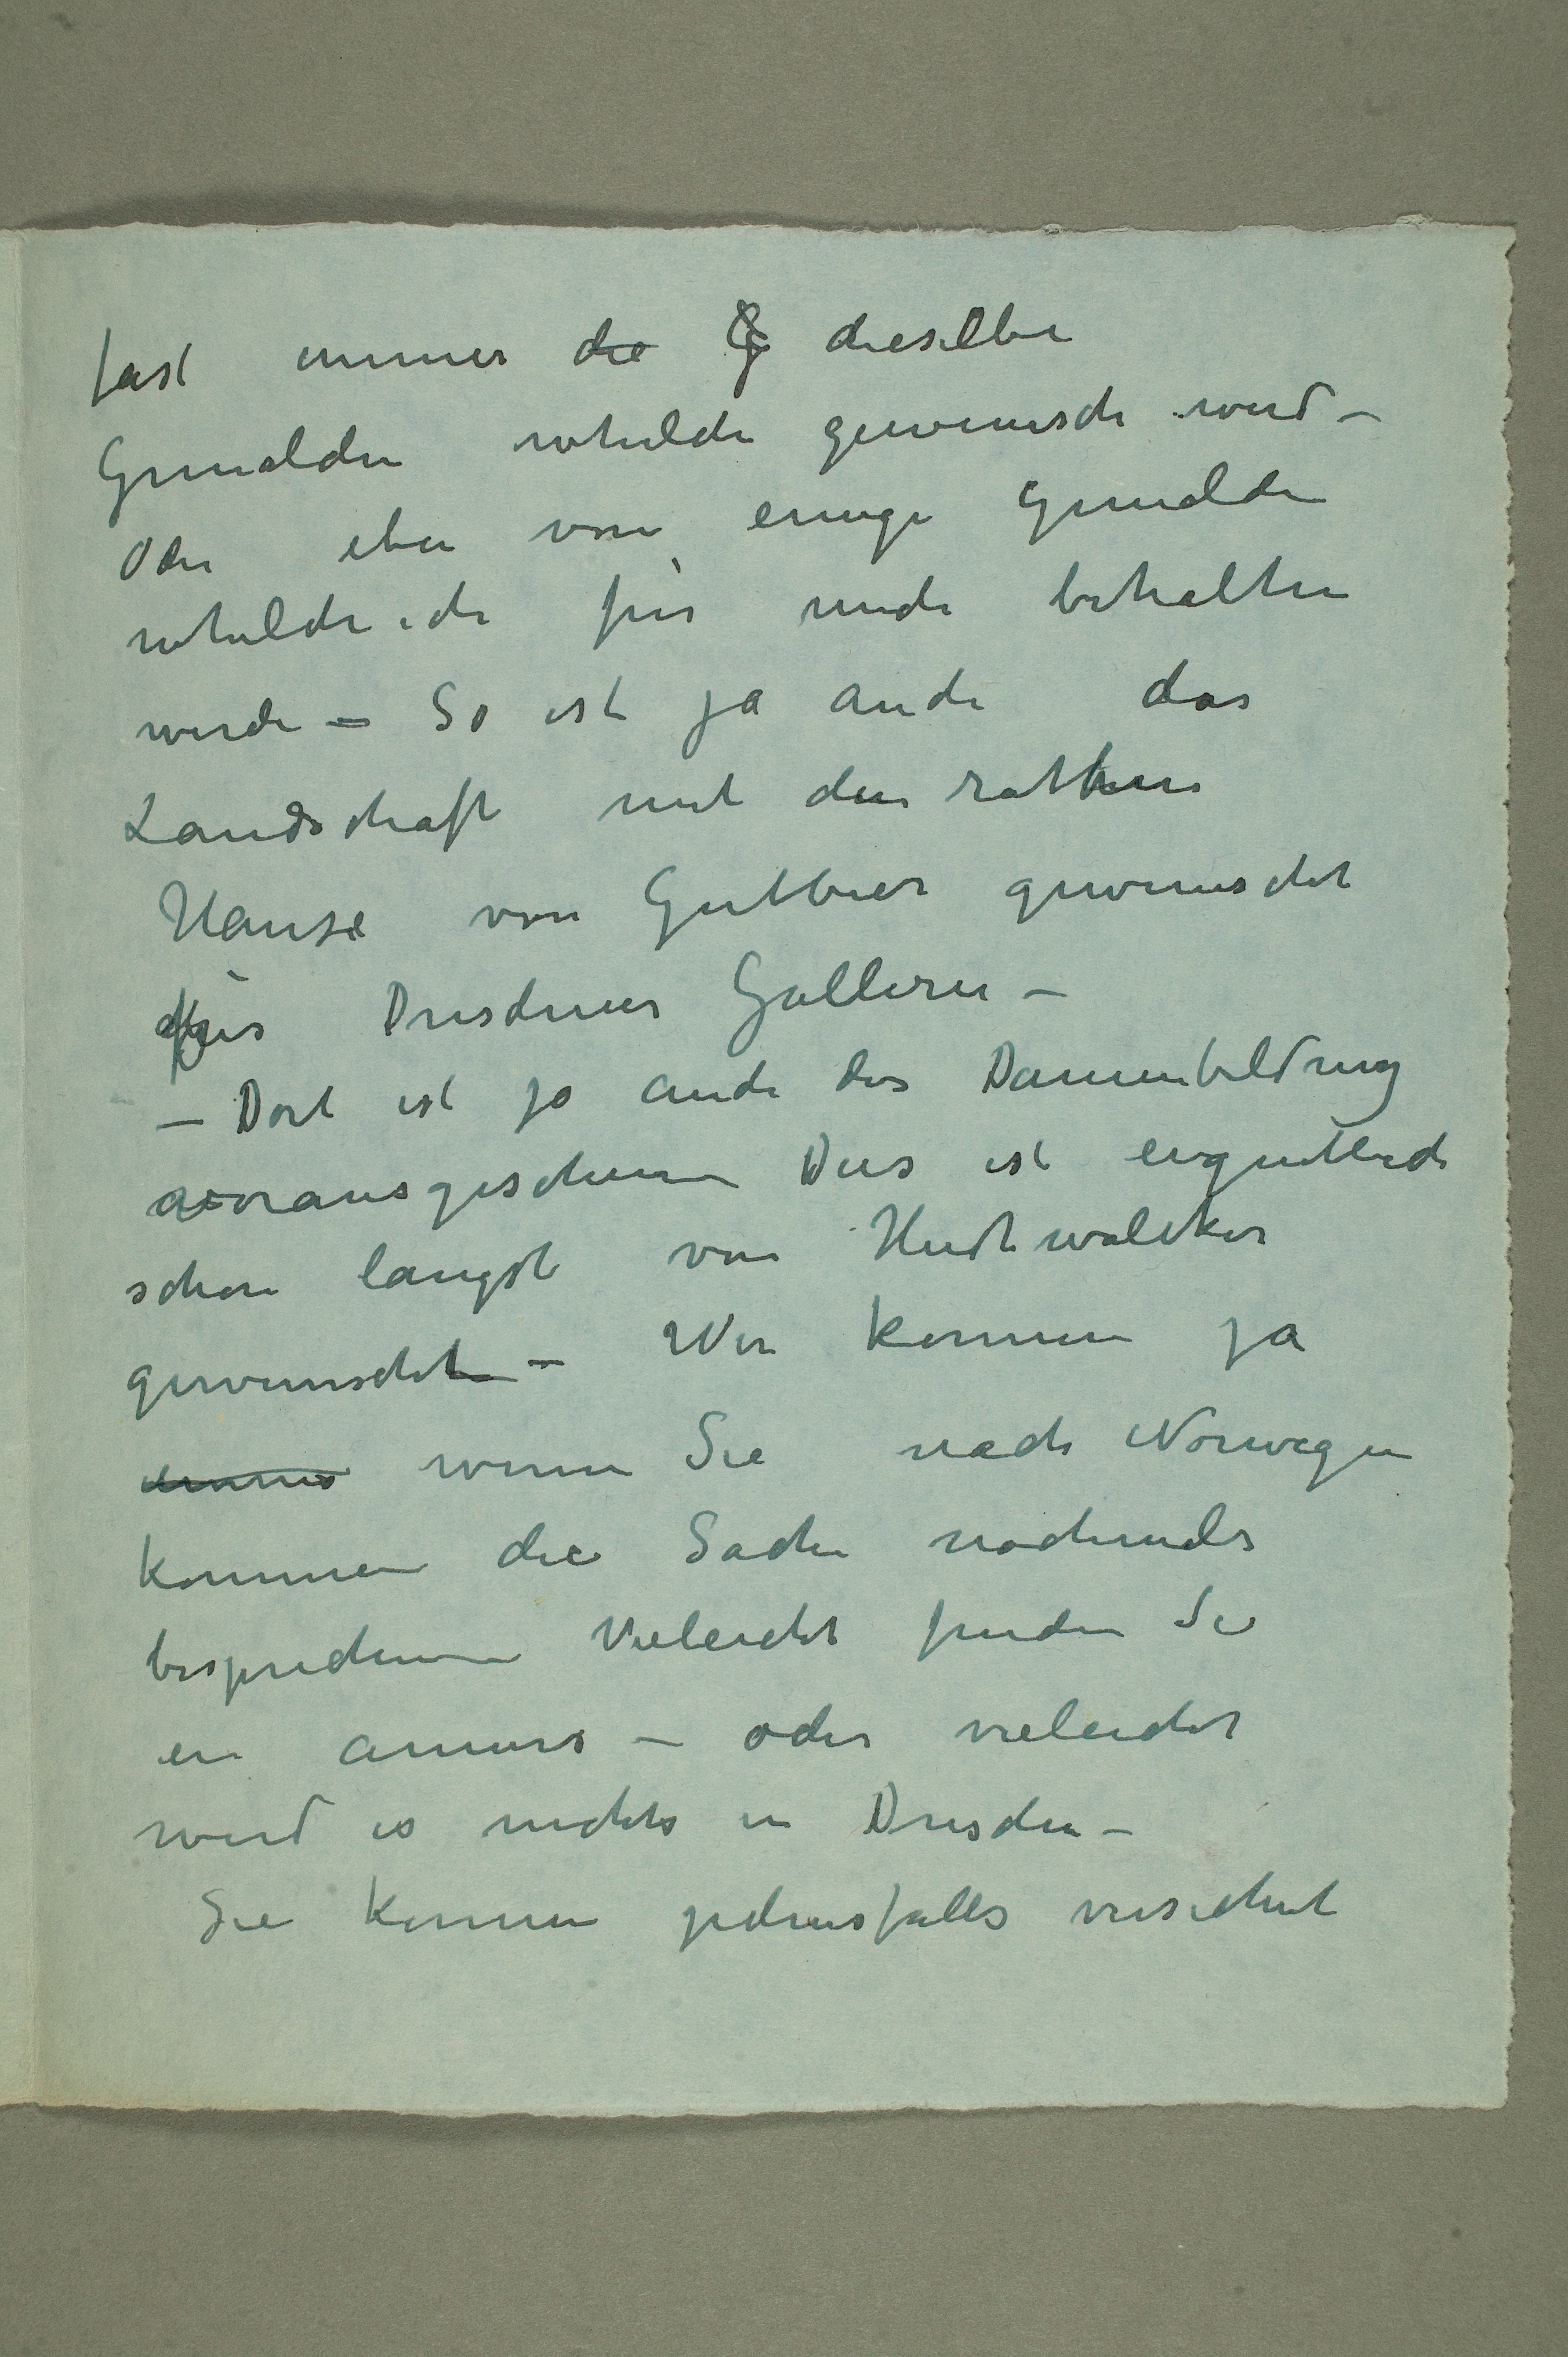 fast immer die G dieselben
Gemälden whelche gewünsch wird –
Oder eben von einige Gemälden
whelche ich für mich behalten
werde – So ist ja auch das
Landschaft mit den rothen
Hause von Gutbier gewünscht
für Dresdener Gallerie –
– Dort ist ja auch das Damenbildnis
vorausgesehen Dies ist eigentlich
schon längst von Hudtwalcker
gewünscht – Wir können ja
immer wenn Sie nach Norwegen
kommen die Sache nochmals
besprechen Vieleicht finden Sie
ein anners – oder vieleicht
wird es nichts in Dresden –
Sie können jedensfalls versichert